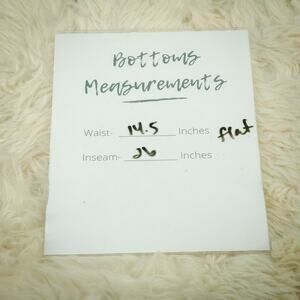 Bottoms
Measurements
Waist- 14.5 Inches flat
Inseam- 26 Inches